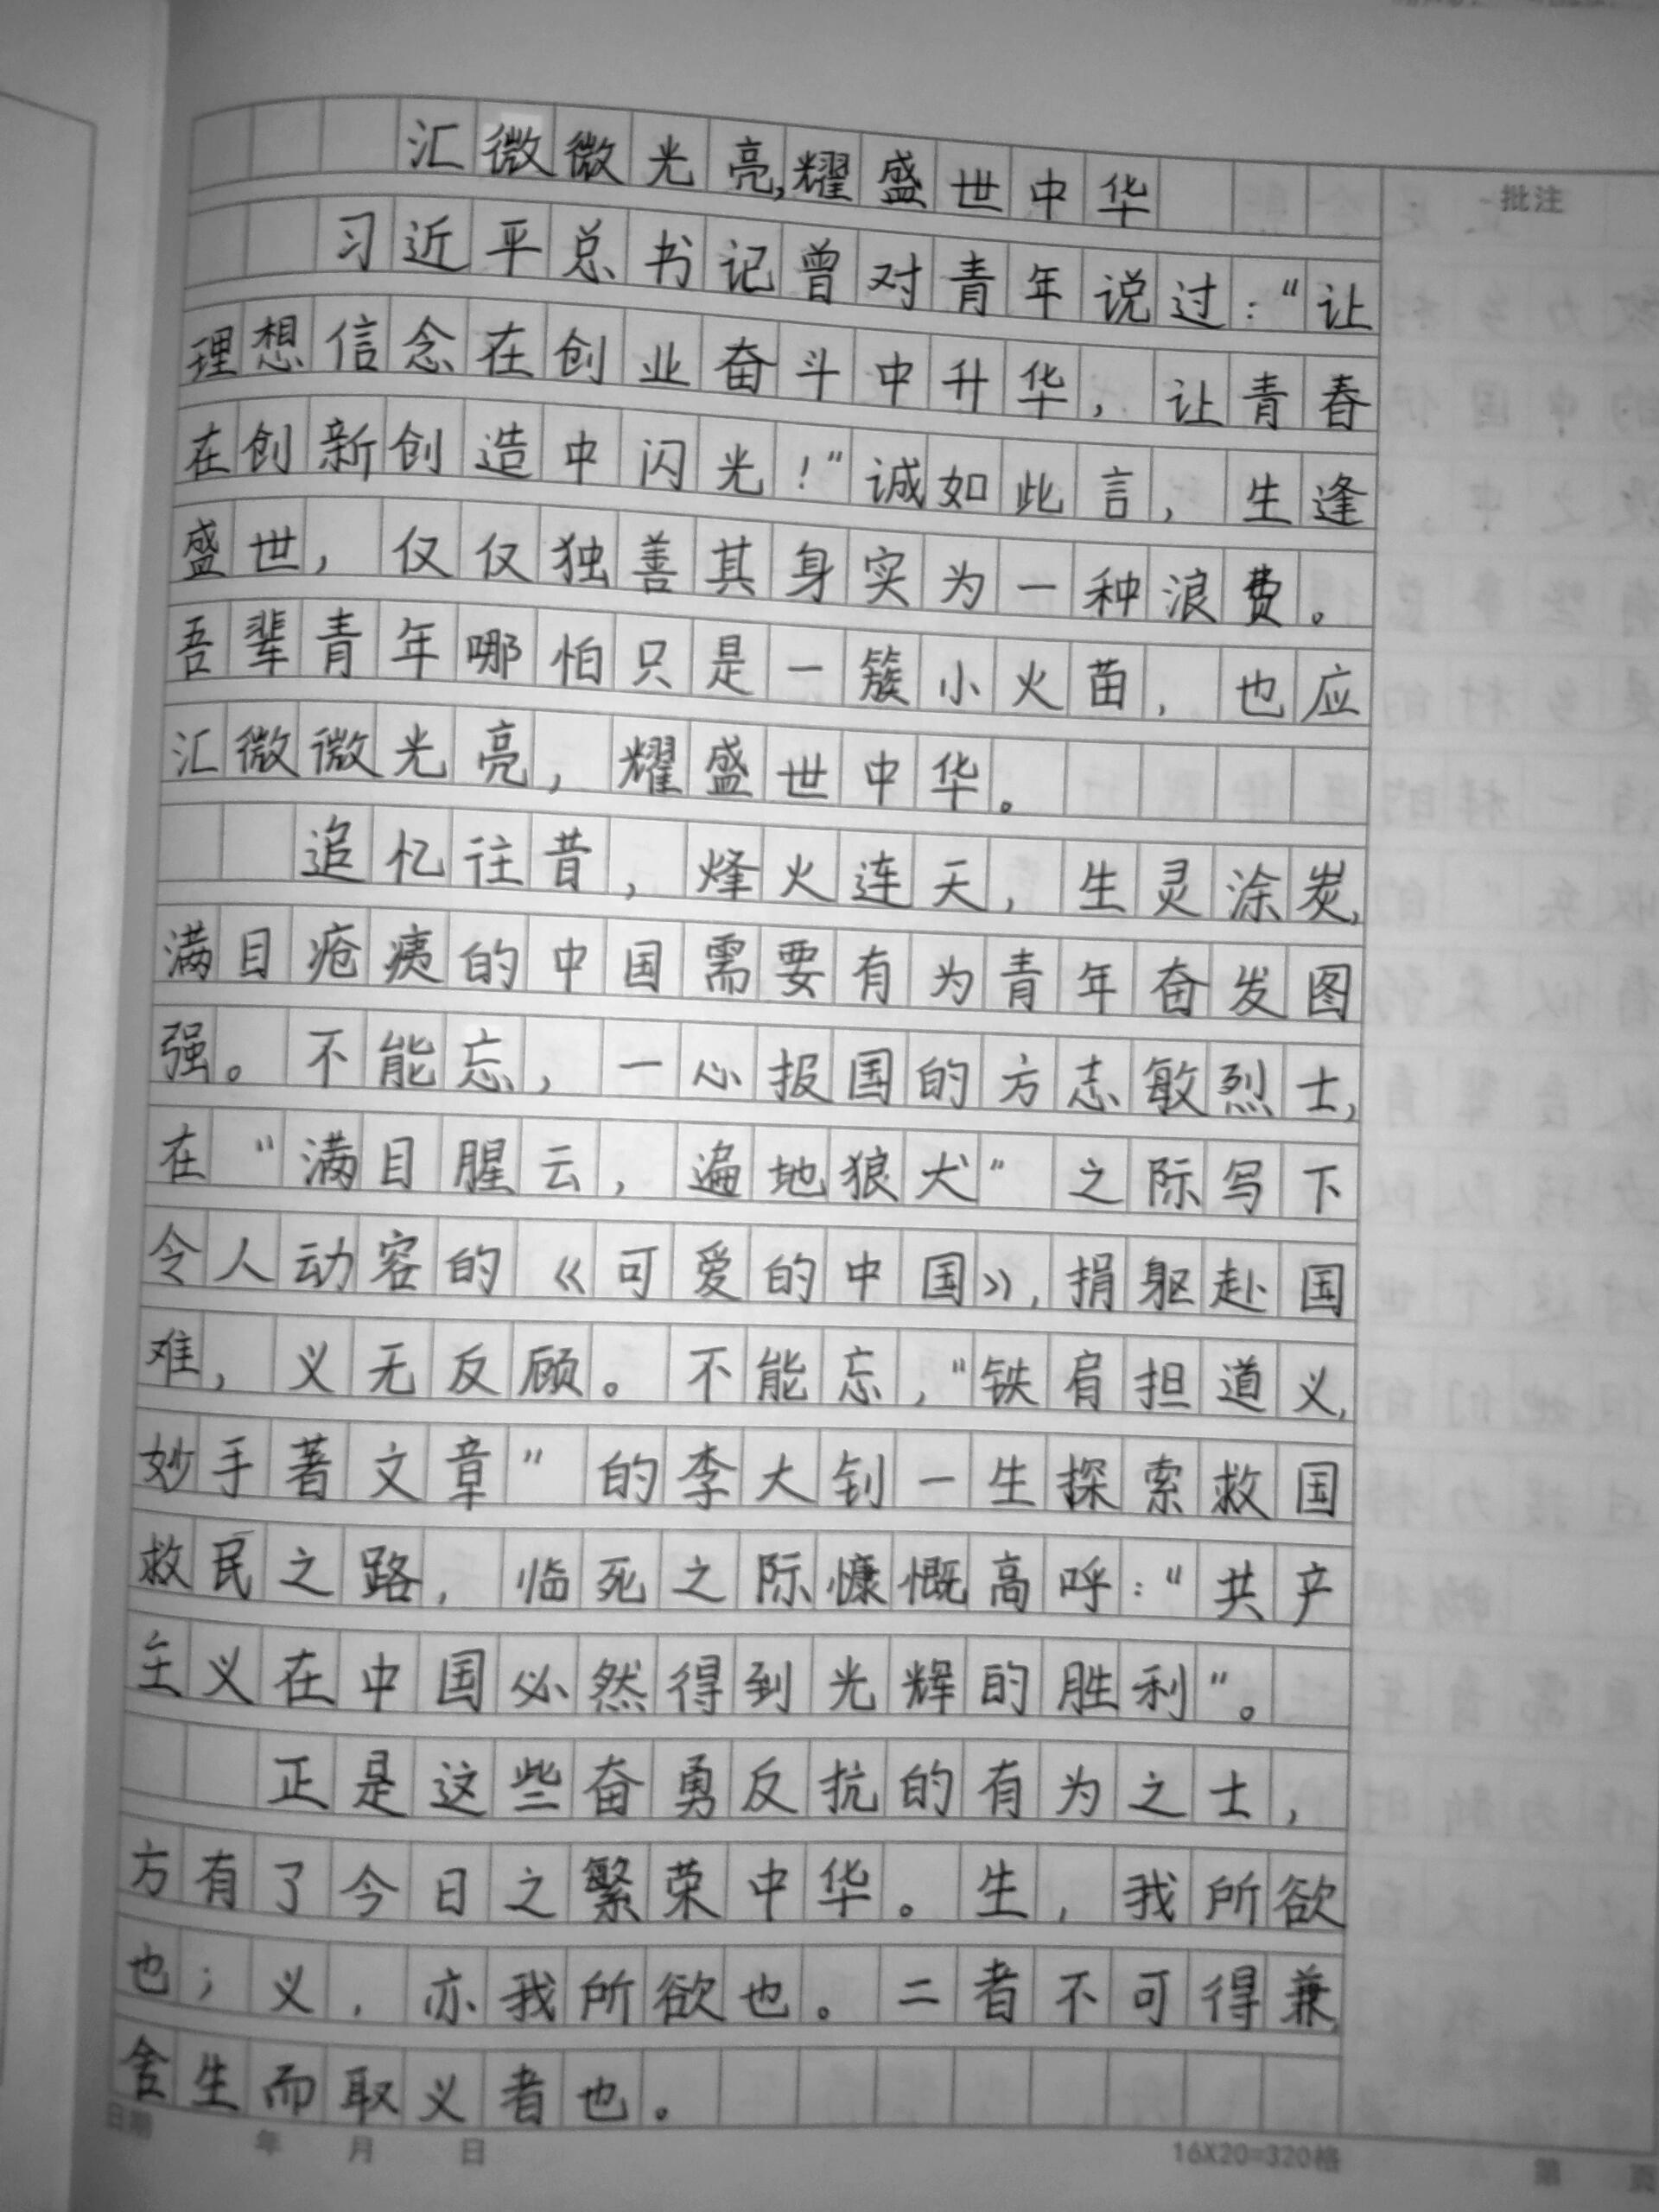 汇微微光亮,耀盛世中华
习近平总书记曾对青年说过:“让
理想信念在创业奋斗中升华,让青春
在创新创造中闪光!”诚如此言,生逢
盛世,仅仅独善其身实为一种浪费。
吾辈青年哪怕只是一簇小火苗,也应
汇微微光亮,耀盛世中华。
追忆往昔,烽火连天,生灵涂炭,
满目疮痍的中国需要有为青年奋发图
强。不能忘,一心报国的方志敏烈士,
在“满目腥云,遍地狼犬”之际写下
令人动容的《可爱的中国》,捐躯赴国
难,义无反顾。不能忘,“铁肩担道义,
妙手著文章”的李大钊一生探索救国
救民之路,临死之际慷慨高呼:“共产
主义在中国必然得到光辉的胜利”。
正是这些奋勇反抗的有为之士,
方有了今日之繁荣中华。生,我所欲
也;义,亦我所欲也。二者不可得兼,
舍生而取义者也。
批注
日期 年 月 日
16X20=320格
第 页